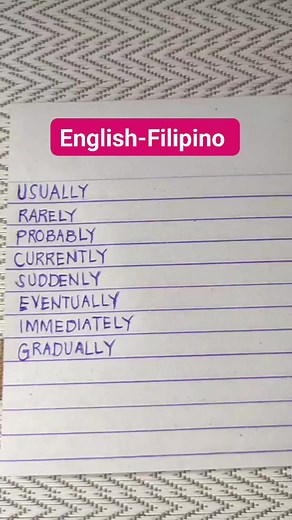 English-Filipino
USUALLY
RARELY
PROBABLY
CURRENTLY
SUDDENLY
EVENTUALLY
IMMEDIATELY
GRADUALLY